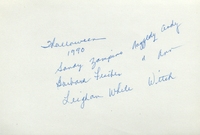 Halloween
1990
Sandy Zampino Raggedy Andy
Barbara Fischer " Ann
Leighan White Witch